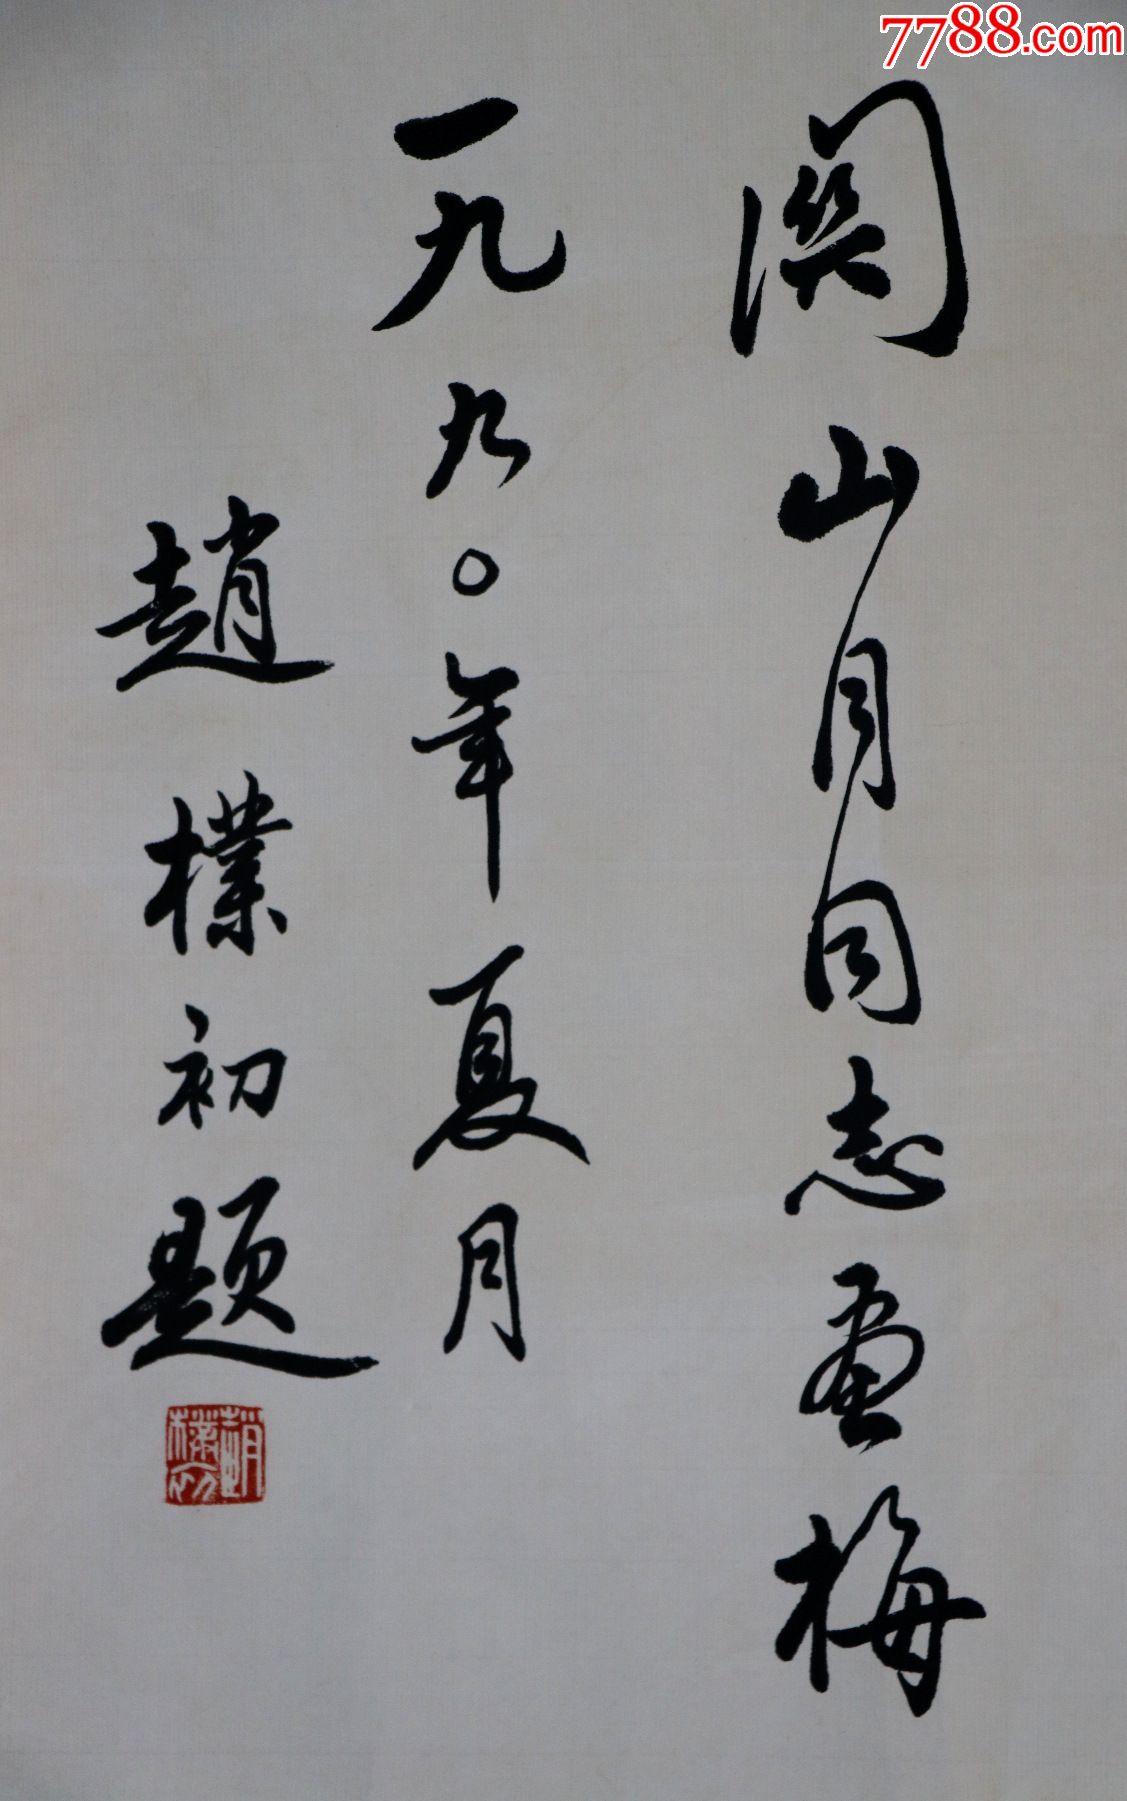 7788.com
關山月同志画梅
一九九〇年夏月
趙樸初題
趙樸初